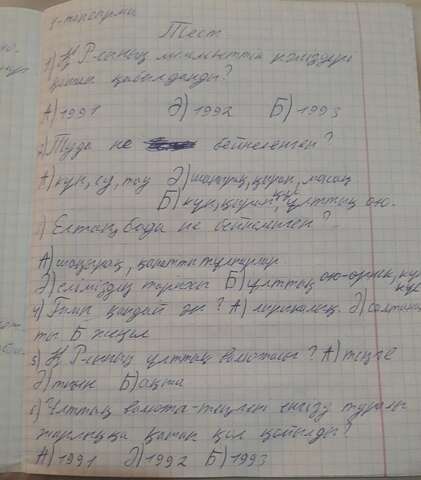 Тест
1) ҚР-ның мемлекеттік рәміздері
қашан қабылданды?
А) 1991 Ә) 1992 Б) 1993
2) Туда не бейнеленген?
А) күн, су, тау Ә) шаңырақ, қыран, масақ
Б) күн, қыран құс, ұлттық ою.
3) Елтаңбада не бейнеленген?
А) шаңырақ, қанатты тұлпарлар
Ә) еліміздің тарихы Б) ұлттық ою-өрнек, күн
құс
4) Гимн қандай ән? А) лирикалық Ә) салтанат
ты Б жеңіл
5) ҚР-ның ұлттық валютасы? А) теңге
Ә) тиын Б) ақша
6) Ұлттық валюта-теңгені енгізу туралы
жарлыққа қашан қол қойылды?
А) 1991 Ә) 1992 Б) 1993